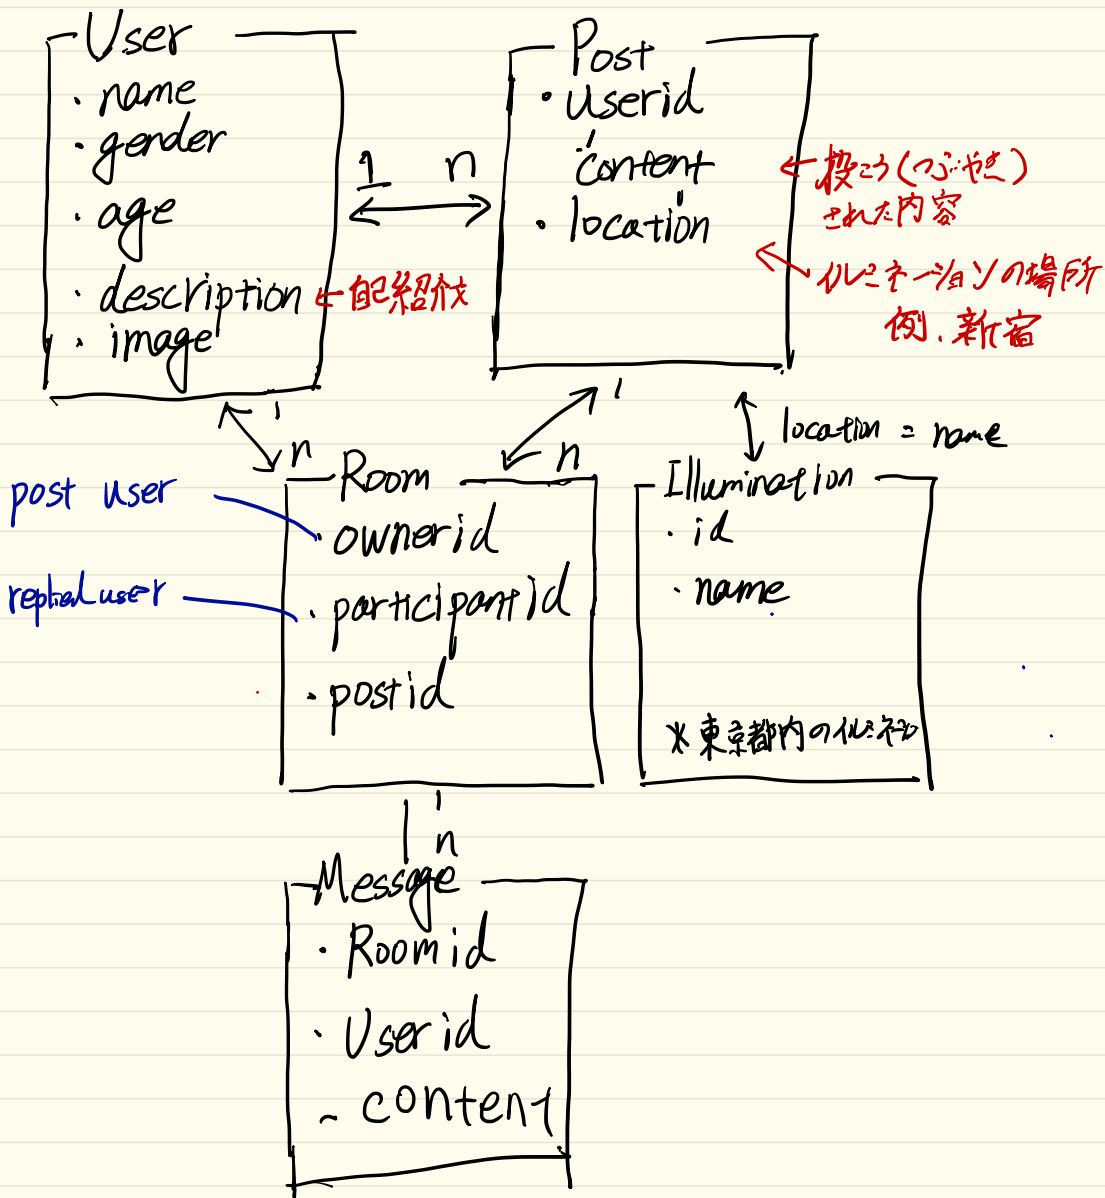 User
・name
・gender
・age
・description
・image
←自己紹介文
1 n
Post
・userid
・content
・location
←投こう(つぶやき)
された内容
イルミネーションの場所
例.新宿
1 n
1 n
location = name
post user
replied user
Room
・ownerid
・participantid
・postid
Illumination
・id
・name
※東京都内のイルミネーション
1
n
Message
・Roomid
・Userid
- content